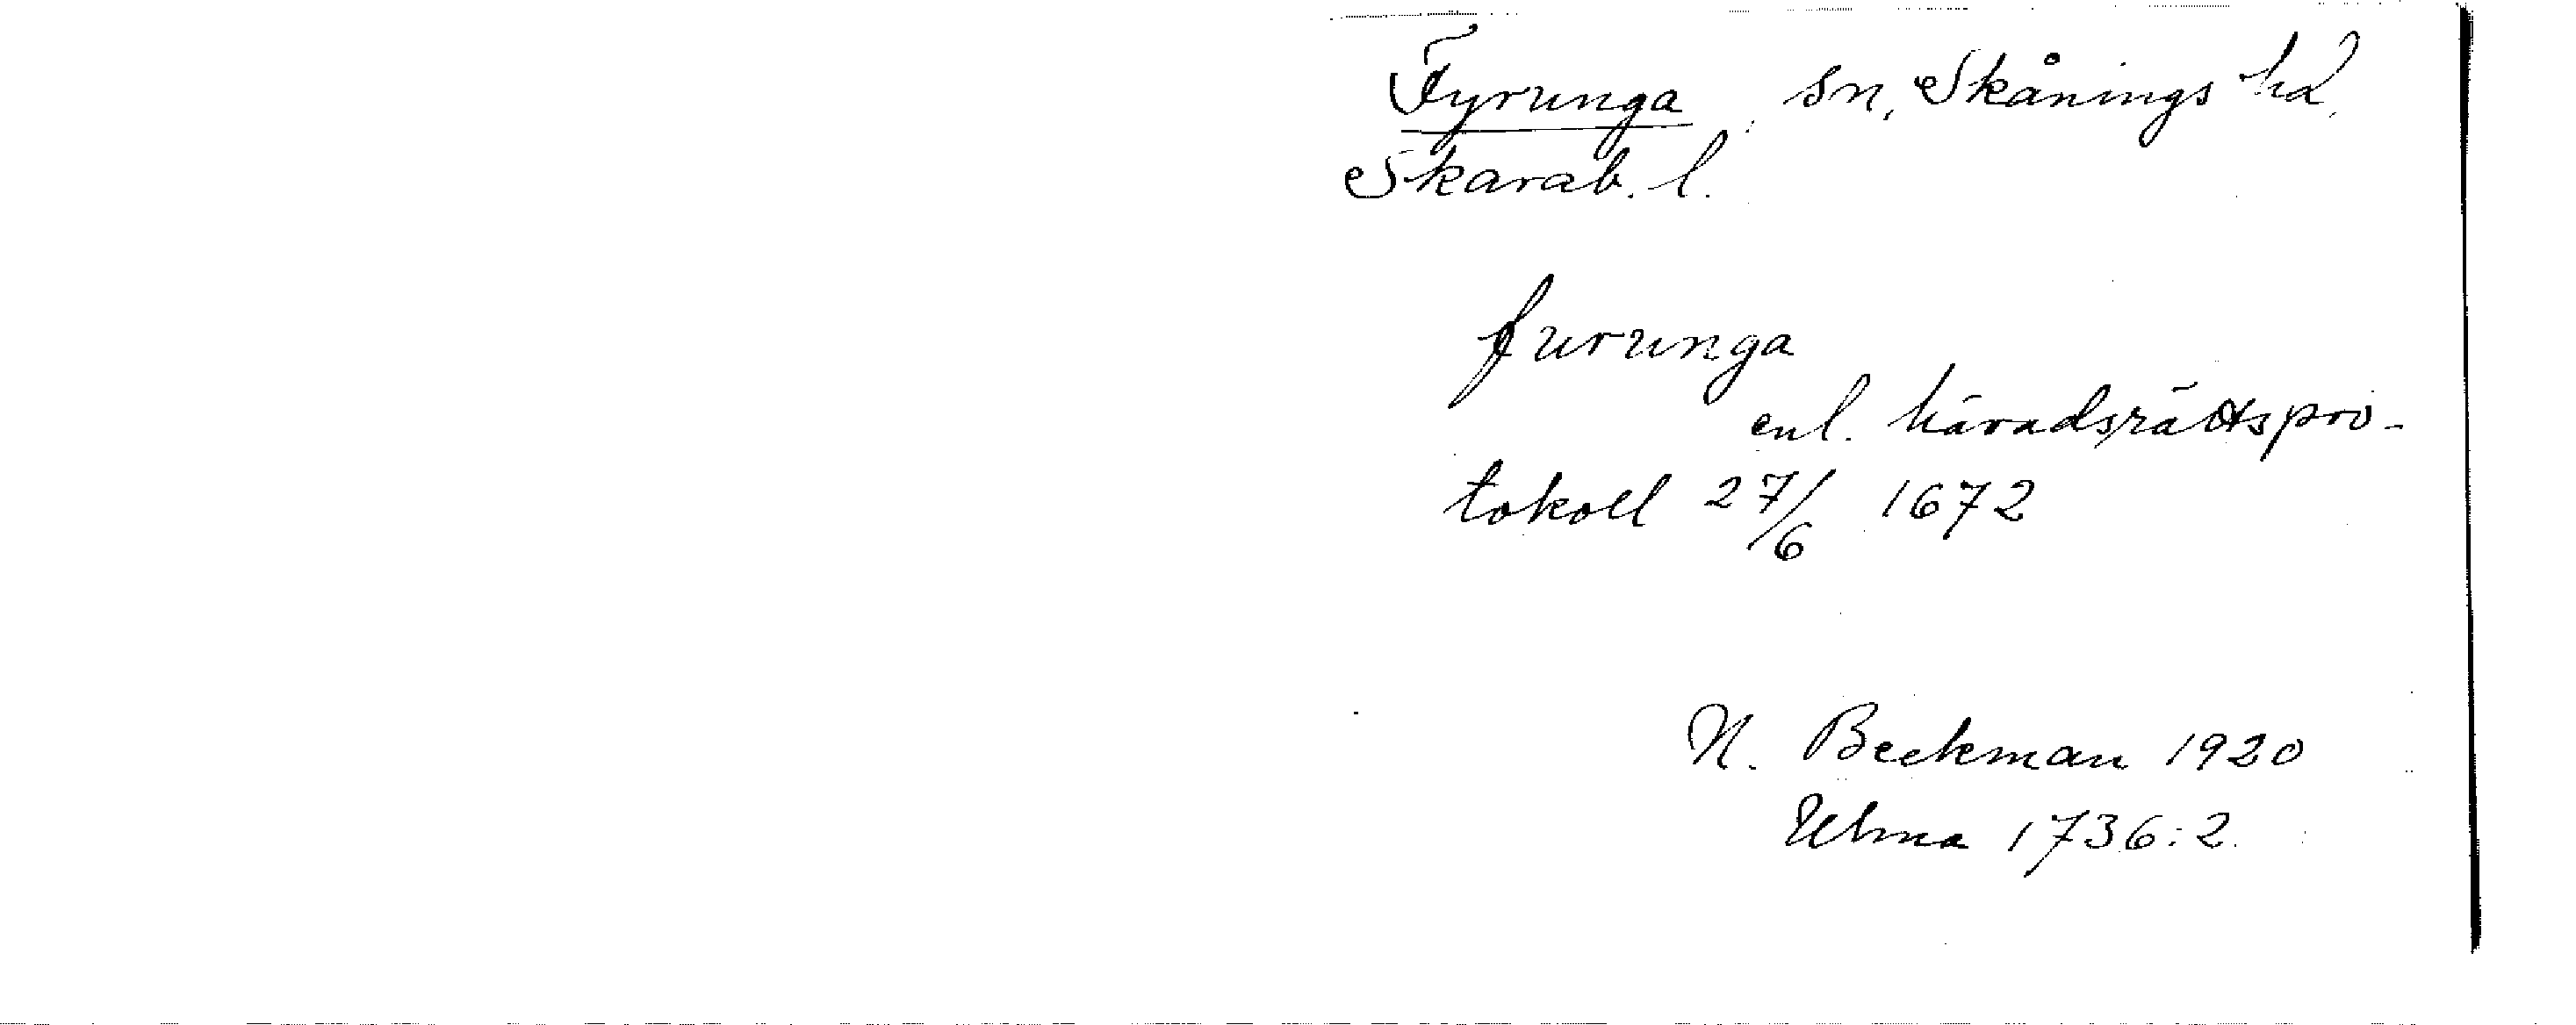 Fyrunga, sn, Skånings hd,
Skarab. l.
furunga
enl. häradsrättspro-
tokoll 27/6 1672
N. Beckman 1920
Ulma 1736:2.